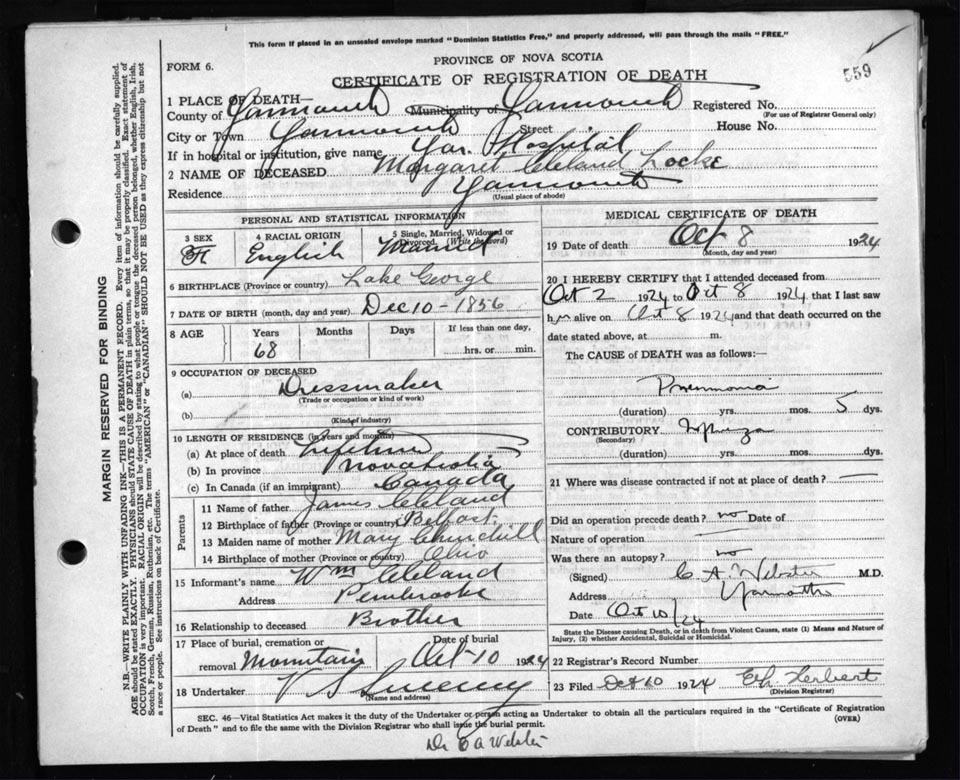 This form if placed in an unsealed envelope marked "Dominion Statistics Free," and properly addressed, will pass through the mails "FREE."
PROVINCE OF NOVA SCOTIA
FORM 6.
CERTIFICATE OF REGISTRATION OF DEATH
559
1 PLACE OF DEATH—
County of Yarmouth Municipality of Yarmouth Registered No.
(For use of Registrar General only)
City or Town Yarmouth Street House No.
If in hospital or institution, give name Yar. Hospital
2 NAME OF DECEASED Margaret Cleland Locke
Residence Yarmouth
(Usual place of abode)
PERSONAL AND STATISTICAL INFORMATION
3 SEX
F
4 RACIAL ORIGIN
English
5 Single, Married, Widowed or Divorced. (Write the word)
Married
6 BIRTHPLACE (Province or country) Lake George
7 DATE OF BIRTH (month, day and year) Dec 10 - 1856
8 AGE Years Months Days If less than one day,
68 hrs. or min.
9 OCCUPATION OF DECEASED
(a) Dressmaker
(Trade or occupation or kind of work)
(b)
(Kind of industry)
10 LENGTH OF RESIDENCE (in years and months)
(a) At place of death Lifetime
(b) In province Nova Scotia
(c) In Canada (if an immigrant) Canada
Parents
11 Name of father James Cleland
12 Birthplace of father (Province or country) Belfast
13 Maiden name of mother Mary Churchill
14 Birthplace of mother (Province or country) Ohio
15 Informant's name Wm Cleland
Address Pembrooke
16 Relationship to deceased Brother
17 Place of burial, cremation or Date of burial
removal Mountain Oct-10 1924
18 Undertaker V S Sweeny
(Name and address)
MEDICAL CERTIFICATE OF DEATH
19 Date of death Oct 8 1924
(Month, day and year)
20 I HEREBY CERTIFY that I attended deceased from
Oct 2 1924 to Oct 8 1924 that I last saw
h alive on Oct 8 1924 and that death occurred on the
date stated above, at m.
The CAUSE OF DEATH was as follows:—
Pneumonia
(duration) yrs. mos. 5 dys.
CONTRIBUTORY
(Secondary)
(duration) yrs. mos. dys.
21 Where was disease contracted if not at place of death? —
Did an operation precede death? no Date of
Nature of operation —
Was there an autopsy? no
(Signed) C. A. Webster M.D.
Address Yarmouth
Date Oct 10/24
State the Disease causing Death, or in death from Violent Causes, state (1) Means and Nature of
Injury, (2) whether Accidental, Suicidal or Homicidal.
22 Registrar's Record Number
23 Filed Oct 10 1924 E H Herbert
(Division Registrar)
SEC. 46—Vital Statistics Act makes it the duty of the Undertaker or person acting as Undertaker to obtain all the particulars required in the "Certificate of Registration
of Death" and to file the same with the Division Registrar who shall issue the burial permit.
(OVER)
Dr C A Webster
MARGIN RESERVED FOR BINDING
N.B.—WRITE PLAINLY WITH UNFADING INK—THIS IS A PERMANENT RECORD. Every item of information should be carefully supplied.
AGE should be stated EXACTLY. PHYSICIANS should STATE CAUSE OF DEATH in plain terms, so that it may be properly classified. Exact statement of
OCCUPATION is very important. RACIAL ORIGIN will be described by stating to what people or tongue the deceased person belonged, whether English, Irish,
Scotch, French, German, Russian, Ruthenian, etc. The terms "AMERICAN" or "CANADIAN" SHOULD NOT BE USED as they express citizenship but not
a race or people. See instructions on back of Certificate.